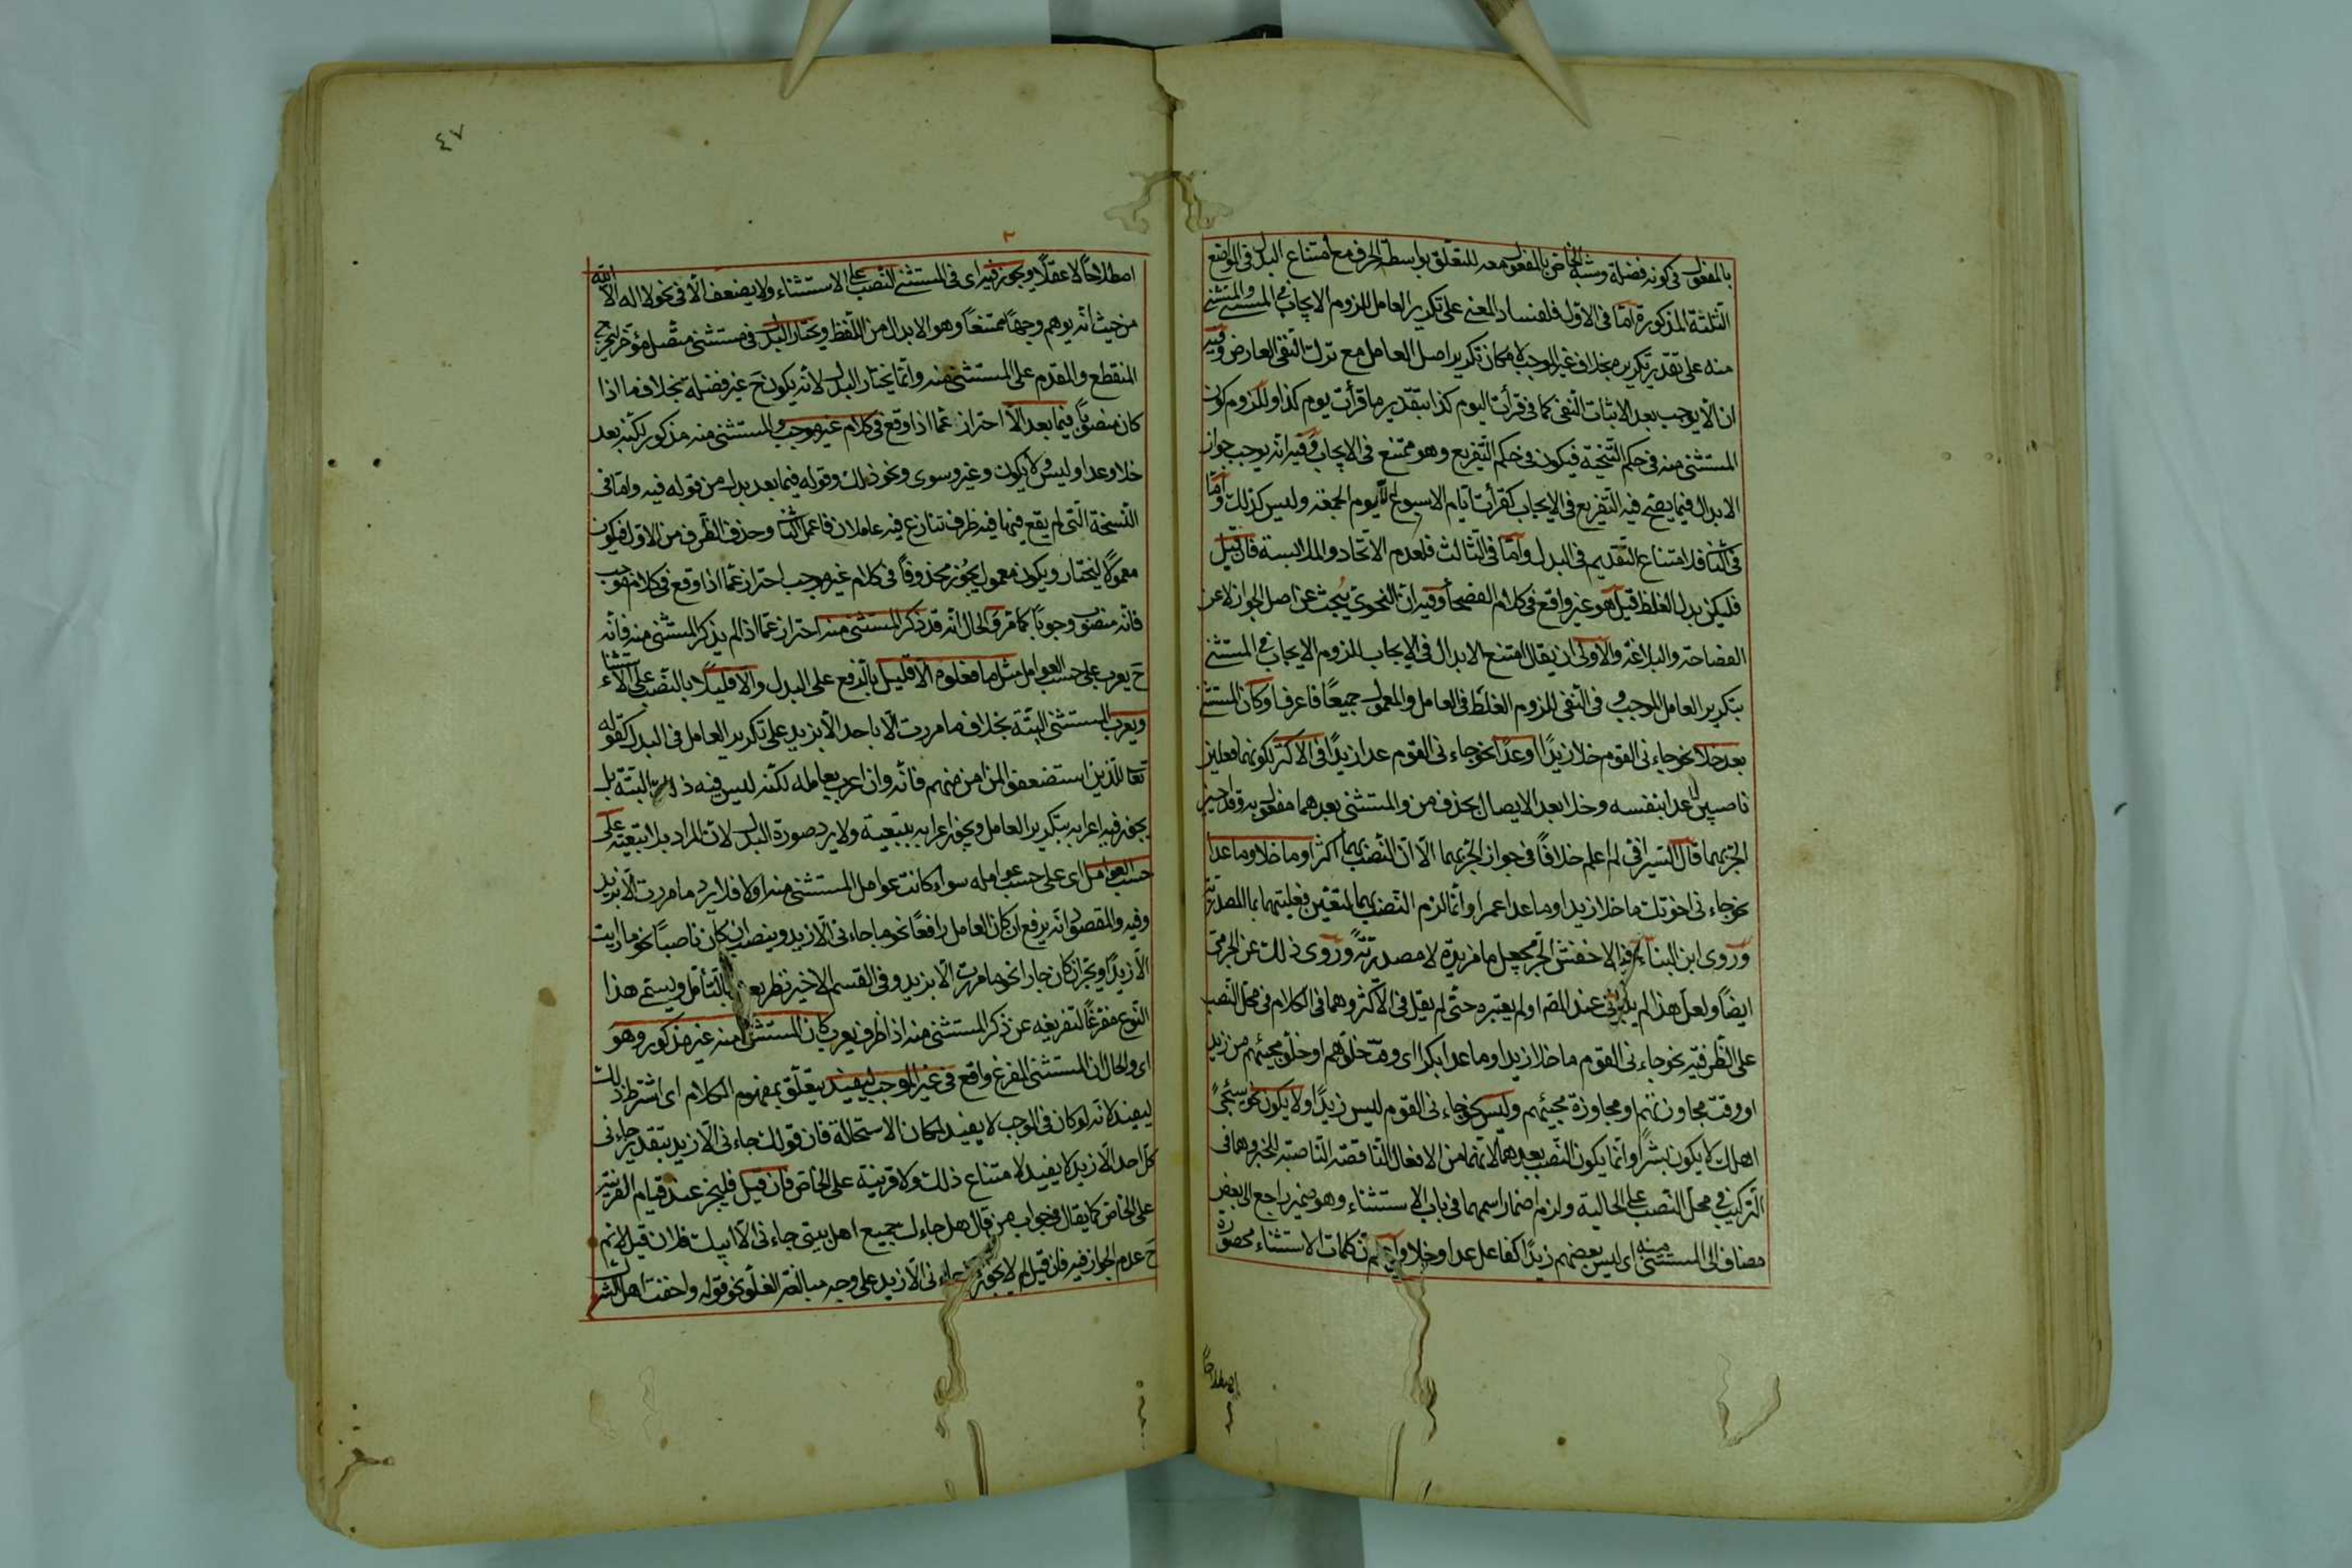 بالمفعول فى كونه فضلة وشبه الخاص بالمفعول معه للتعلق بواسطة الحرف مع امتناع البدل فى المواضع
الثلثة المذكورة اما فى الاول فلفساد المعنى على تكرير العامل للزوم الايجاب فى المستثنى والمستثنى
منه على تقدير تكريره بخلاف غير الموجب لامكان تكرير اصل العامل مع ترك النفى العارض وفيه
ان الا يوجب بعد الاثبات النفى كما فى قرأت اليوم كذا بتقدير ما قرأت يوم كذا وللزوم كون
المستثنى منه فى حكم التنحية فيكون فى حكم التفريغ وهو ممتنع فى الايجاب وفيه انه يوجب جواز
الابدال فيما يصح فيه التفريغ فى الايجاب كقرأت ايام الاسبوع الا يوم الجمعة وليس كذلك واما
فى الثانى فلامتناع التقديم فى البدل واما فى الثالث فلعدم الاتحاد والملابسة فان قيل
فليكن بدل الغلط قيل هو غير واقع فى كلام الفصحاء وفيه ان النحوى يبحث عن اصل الجواز لا عن
الفصاحة والبلاغة والاولى ان يقال امتنع الابدال فى الايجاب للزوم الايجاب فى المستثنى
بتكرير العامل الموجب وفى النفى للزوم الغلط فى العامل والمعمول جميعا فاعرف او كان المستثنى
بعد خلا نحو جاءنى القوم خلا زيدا او عدا نحو جاءنى القوم عدا زيدا فى الاكثر لكونهما فعلين
ناصبين عدا بنفسه وخلا بعد الايصال بحذف من والمستثنى بعدهما مفعول به وقد اجيز
الجر بهما قال السيرافى لم اعلم خلافا فى جواز الجر بهما الا ان النصب بهما اكثر او ما خلا وما عدا
نحو جاءنى اخوتك ما خلا زيدا وما عدا عمرا وانما لزم النصب بهما لتعين فعليتهما بما المصدرية
وروى ابن البناء عن الاخفش الجر بجعل ما مزيدة لا مصدرية وروى ذلك عن الجرمى
ايضا ولعل هذا لم يثبت عند المص او لم يعتبره حتى لم يقل فى الاكثر وهما فى الكلام فى محل النصب
على الظرفية نحو جاءنى القوم ما خلا زيدا وما عدا بكرا اى وقت خلوهم او خلو مجيئهم من زيد
او وقت مجاوزتهم او مجاوزة مجيئهم وليس نحو جاءنى القوم ليس زيدا ولا يكون نحو سيجئ
اهلك لا يكون بشرا وانما يكون النصب بعدهما لانهما من الافعال الناقصة الناصبة للخبر وهما فى
التركيب فى محل النصب على الحالية ولزم اضمار اسمهما فى باب الاستثناء وهو ضمير راجع الى بعض
مضاف الى المستثنى منه اى ليس بعضهم زيدا كفاعل عدا وخلا كلمات الاستثناء محصورة
اصطلاحا
٤٧
اصطلاحا لا عقلا ويجوز فيه اى فى المستثنى النصب على الاستثناء ولا يضعف الا فى نحو لا اله الا الله
من حيث انه يوهم وجها ممتنعا وهو الابدال من اللفظ ويختار البدل فى مستثنى متصل مؤخر ليخرج
المنقطع والمقدم على المستثنى منه وانما يختار البدل لانه يكون ح غير فضلة بخلاف ما اذا
كان منصوبا فيما بعد الا احتراز عما اذا وقع فى كلام غير موجب والمستثنى منه مذكور لكنه بعد
خلا وعدا وليس ولا يكون وغير وسوى ونحو ذلك وقوله فيما بعد بدل من قوله فيه واما فى
النسخة التى لم يقع فيها فيه ظرف تنازع فيه عاملان فاعمل الثانى وحذف الظرف من الاول فيكون
معمولا ليختار ويكون معمول يجوز محذوفا فى كلام غير موجب احتراز عما اذا وقع فى كلام موجب
فانه منصوب وجوبا كما مر والحال انه قد ذكر المستثنى منه احتراز عما اذا لم يذكر المستثنى منه فانه
ح يعرب على حسب العوامل مثل ما فعلوه الا قليل بالرفع على البدل والا قليلا بالنصب على الاستثناء
ويعرب المستثنى البتة بخلاف ما مررت الا باحد الا بزيد على تكرير العامل فى البدل كقوله
تعالى للذين استضعفوا لمن امن منهم فانه وان اعرب بعامله لكنه ليس فيه ذلك البتة بل
يجوز فيه اعرابه بتكرير العامل ويجوز اعرابه بتبعية ولا يرد صورة البدل لان المراد بلا تبعية على
حسب العوامل اى على حسب عوامله سواء كانت عوامل المستثنى منه او لا فلا يرد ما مررت الا بزيد
وفيه والمقصود انه يرفع ان كان العامل رافعا نحو ما جاءنى الا زيد وينصب ان كان ناصبا نحو ما رايت
الا زيدا ويجر ان كان جارا نحو ما مررت الا بزيد وفى القسم الاخير نظر يعرف بالتأمل ويسمى هذا
النوع مفرغا لتفريغه عن ذكر المستثنى منه اذا ظرف يعرب كان المستثنى منه غير مذكور وهو
اى والحال ان المستثنى المفرغ واقع فى غير الموجب ليفيد يتعلق بمفهوم الكلام اى اشترط ذلك
ليفيد لانه لو كان فى الموجب لا يفيد لمكان الاستحالة فان قولك جاءنى الا زيد بتقدير جاءنى
كل احد الا زيد لا يفيد لامتناع ذلك ولا قرينة على الخاص فان قيل فليجز عند قيام القرينة
على الخاص كما يقال فى جواب من قال هل جاءك جميع اهل بيتى جاءنى الا ابيك فلان قيل لانهم
ح عدم الجواز فيه فان قيل لم لا يجوز جاءنى الا زيد على وجه مبالغة الغلو نحو قوله واخفت اهل الشرك